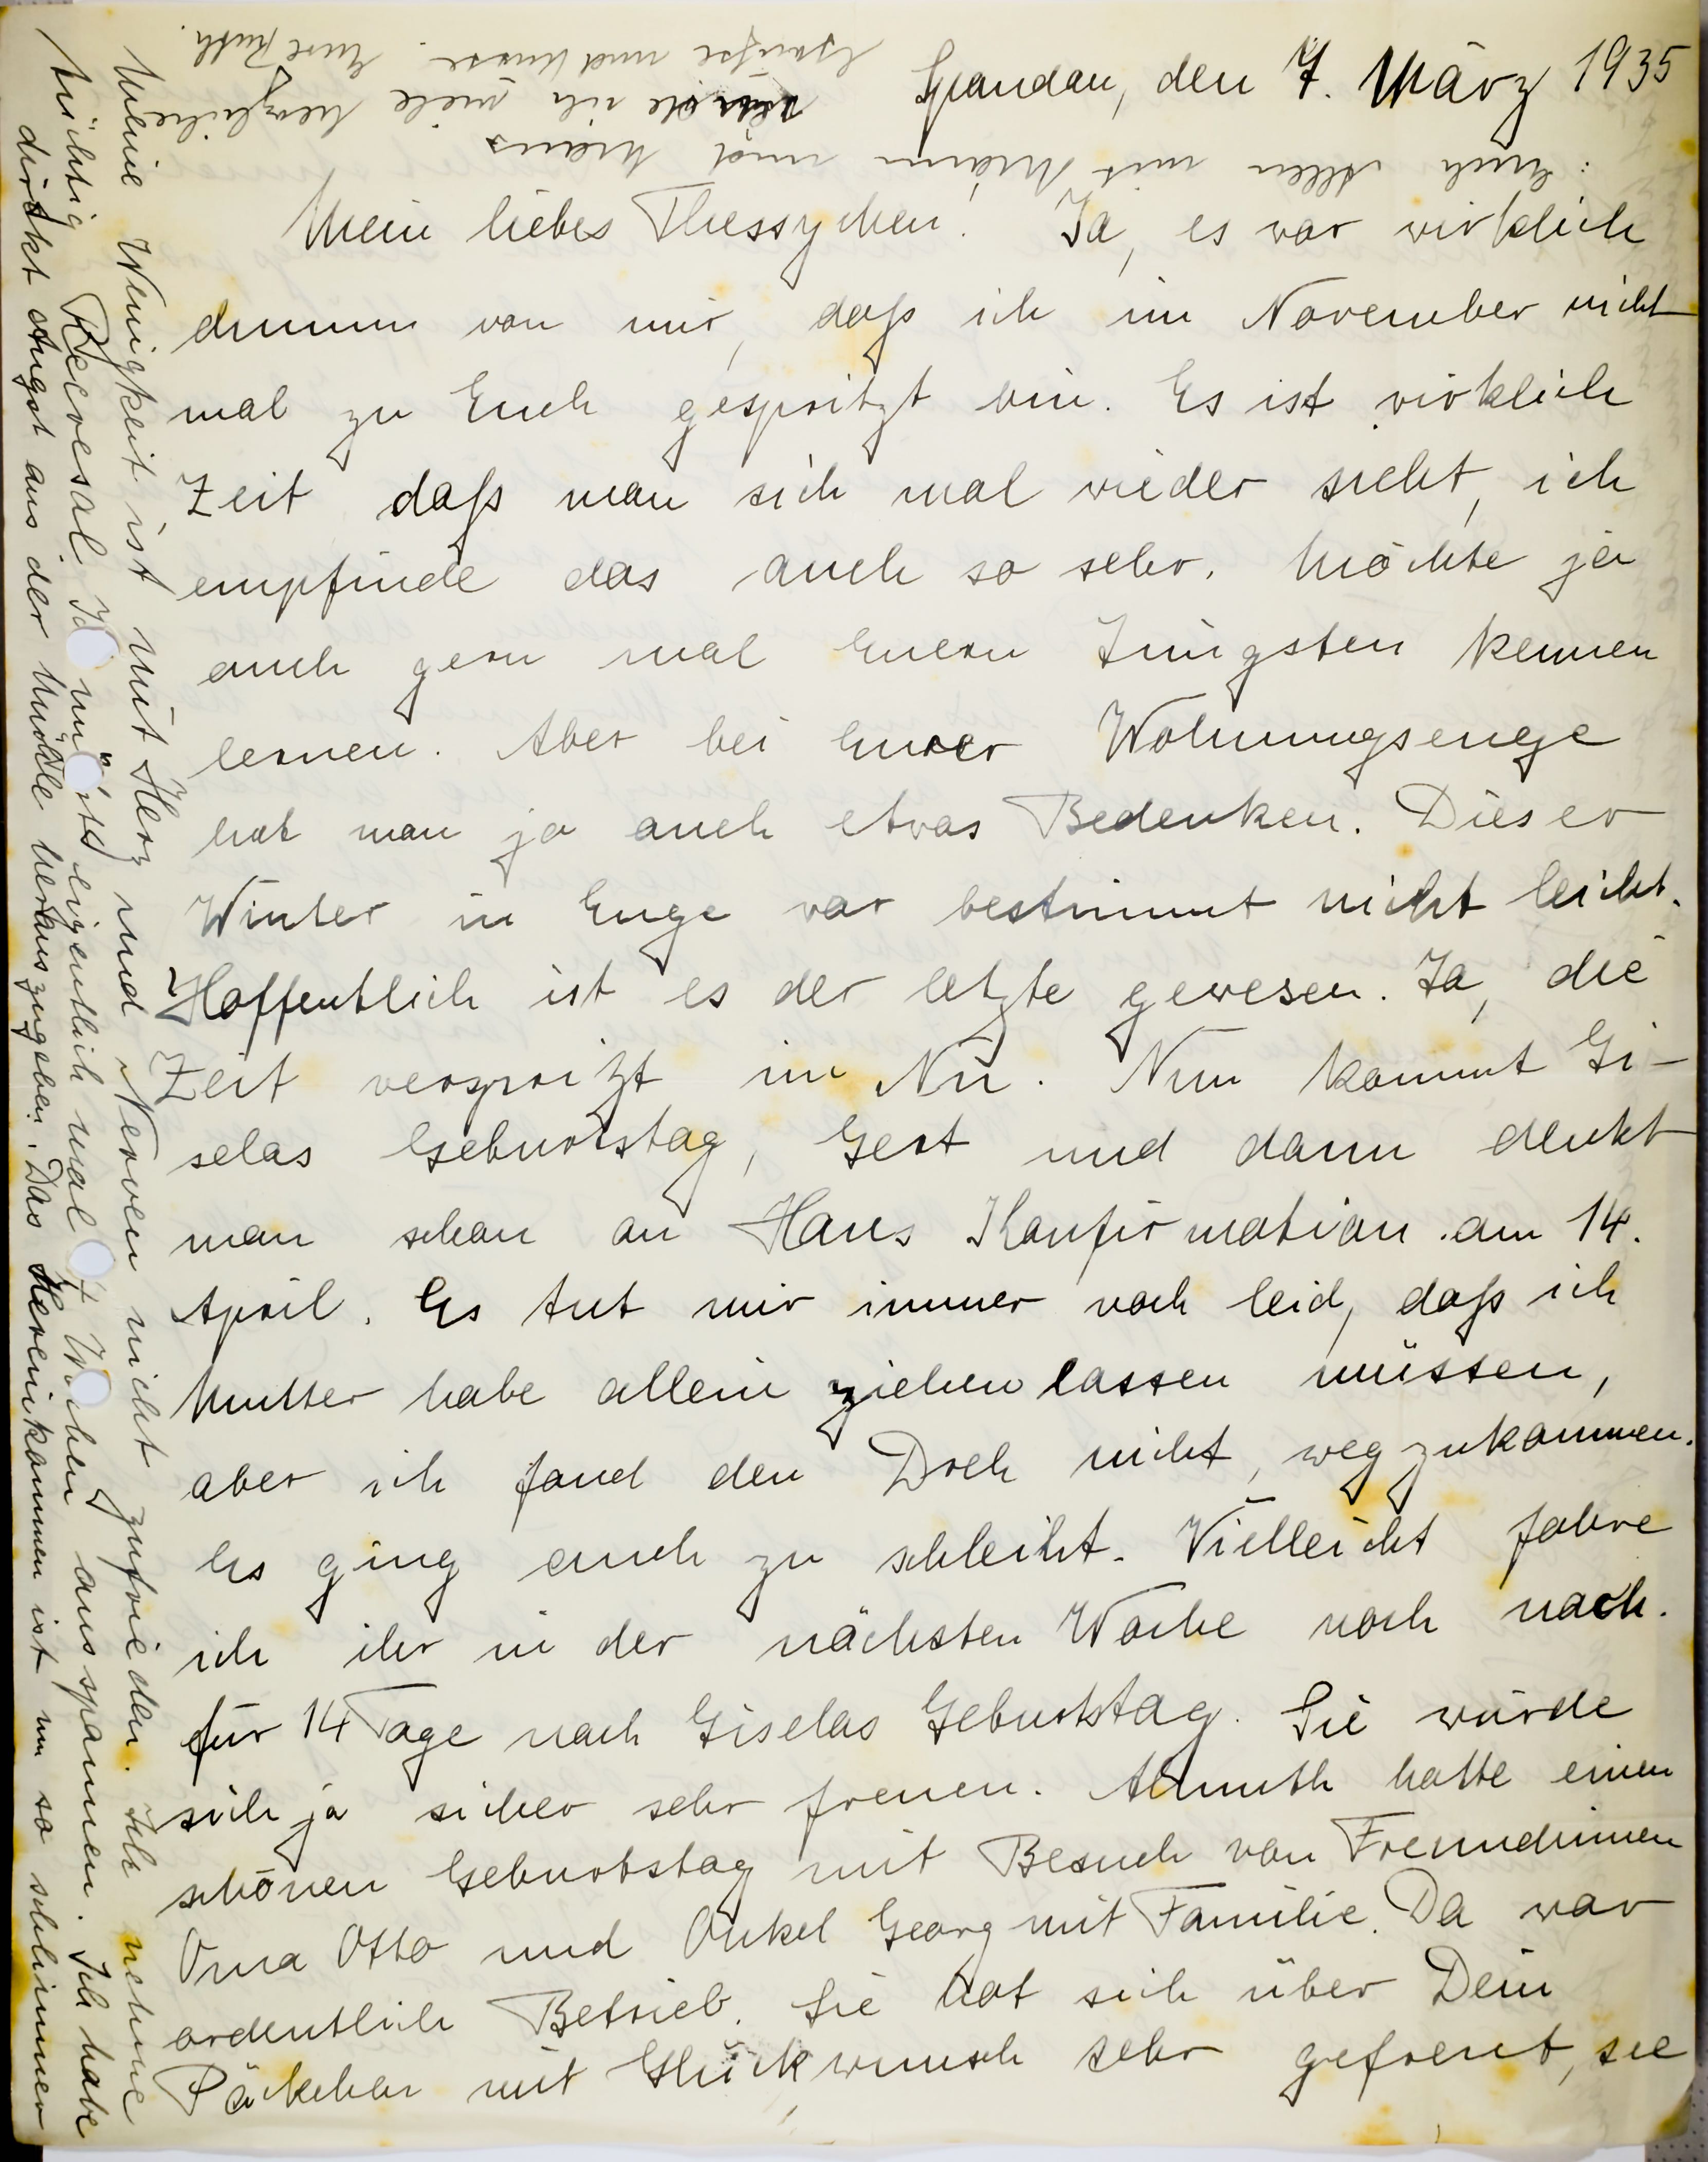 Spandau, den 7. März 1935
Mein liebes Thessychen! Ja, es war wirklich
dumm von mir, daß ich im November nicht
mal zu Euch gespritzt bin. Es ist wirklich
Zeit daß man sich mal wieder sieht, ich
empfinde das auch so sehr. Möchte ja
auch gern mal Euern Jüngsten kennen
lernen. Aber bei Eurer Wohnungsenge
hat man ja auch etwas Bedenken. Dieser
Winter in Enge war bestimmt nicht leicht.
Hoffentlich ist es der letzte gewesen. Ja, die
Zeit verspritzt im Nu. Nun kommt Gi-
selas Geburtstag, Gert und dann denkt
man schon an Hans Konfirmation am 14.
April. Es tut mir immer noch leid, daß ich
Mutter habe allein ziehen lassen müssen,
aber ich fand den Dreh nicht, wegzukommen.
Es ging auch zu schlecht. Vielleicht fahre
ich ihr in der nächsten Woche noch nach.
für 14 Tage nach Giselas Geburtstag. Sie würde
sich ja sicher sehr freuen. Almuth hatte einen
schönen Geburtstag mit Besuch von Freundinnen
Oma Otto und Onkel Georg mit Familie. Da war
ordentlich Betrieb. Sie hat sich über Dein
Päckchen mit Glückwunsch sehr gefreut, sie
Meine Wenigkeit ist mit Herz und Nerven nicht zufrieden. Ich nehme
tüchtig Recresal Ich müßte eigentlich mal Wochen ausspannen. Ich habe
direkt Angst aus der Mücke herauszugeben. Das Hereinkommen ist um so schlimmer
Euch Allen mit Mann und Maus
sende ich viele herzliche
Grüße und Küsse. Eure Ruth.